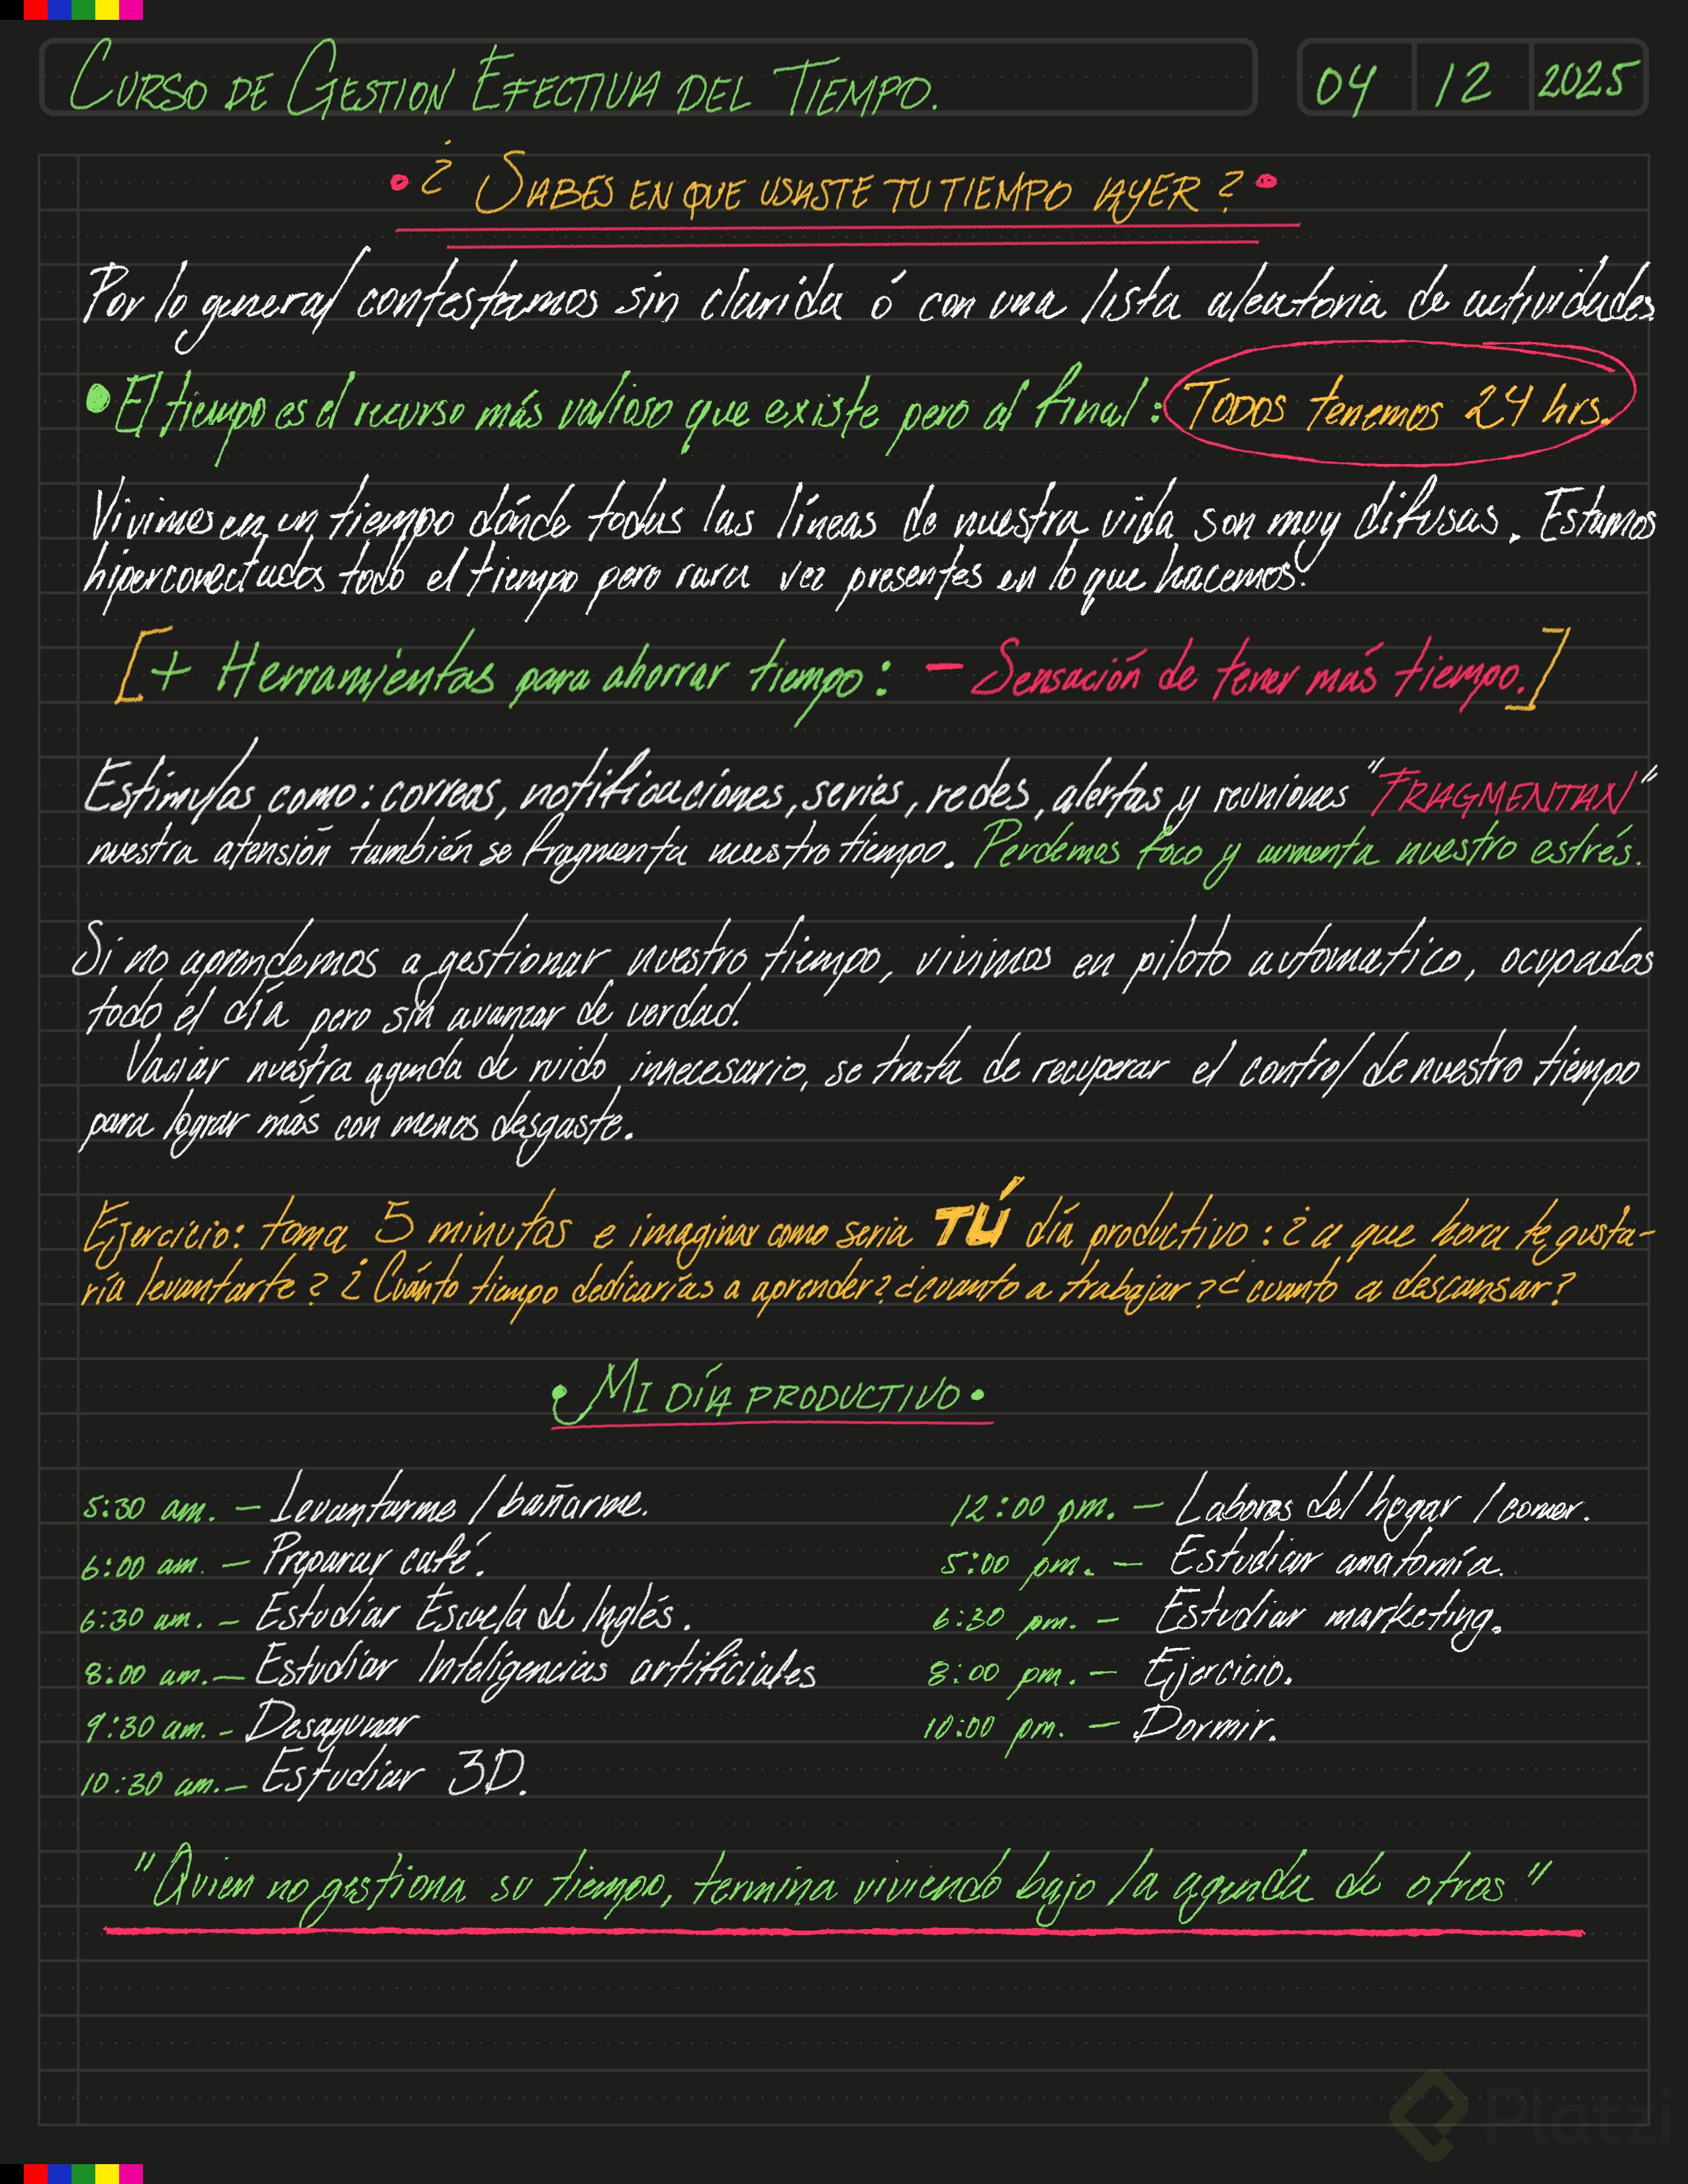 CURSO DE GESTION EFECTIVA DEL TIEMPO.
04 12 2025
• ¿ SABES EN QUE USASTE TU TIEMPO AYER ? •
Por lo general contestamos sin clarida ó con una lista aleatoria de actividades.
• El tiempo es el recurso más valioso que existe pero al final: TODOS tenemos 24 hrs.
Vivimos en un tiempo dónde todas las líneas de nuestra vida son muy difusas. Estamos
hiperconectados todo el tiempo pero rara vez presentes en lo que hacemos.
[+ Herramientas para ahorrar tiempo: - Sensación de tener más tiempo.]
Estimulos como: correos, notificaciónes, series, redes, alertas y reuniones "FRAGMENTAN"
nuestra atensión también se fragmenta nuestro tiempo. Perdemos foco y aumenta nuestro estrés.
Si no aprendemos a gestionar nuestro tiempo, vivimos en piloto automatico, ocupados
todo el día pero sin avanzar de verdad.
Vaciar nuestra agenda de ruido innecesario, se trata de recuperar el control de nuestro tiempo
para lograr más con menos desgaste.
Ejercicio: toma 5 minutos e imaginar como seria TÚ día productivo: ¿a que hora te gusta-
ría levantarte? ¿Cuánto tiempo dedicarías a aprender? ¿cuanto a trabajar? ¿cuanto a descansar?
• MI DÍA PRODUCTIVO •
5:30 am. - Levantarme / bañarme.
6:00 am. - Preparar café.
6:30 am. - Estudiar Escuela de Inglés.
8:00 am. - Estudiar Inteligencias artificiales
9:30 am. - Desayunar
10:30 am. - Estudiar 3D.
12:00 pm. - Labores del hogar / comer.
5:00 pm. - Estudiar anatomía.
6:30 pm. - Estudiar marketing.
8:00 pm. - Ejercicio.
10:00 pm. - Dormir.
"Quien no gestiona su tiempo, termina viviendo bajo la agenda de otros"
Platzi